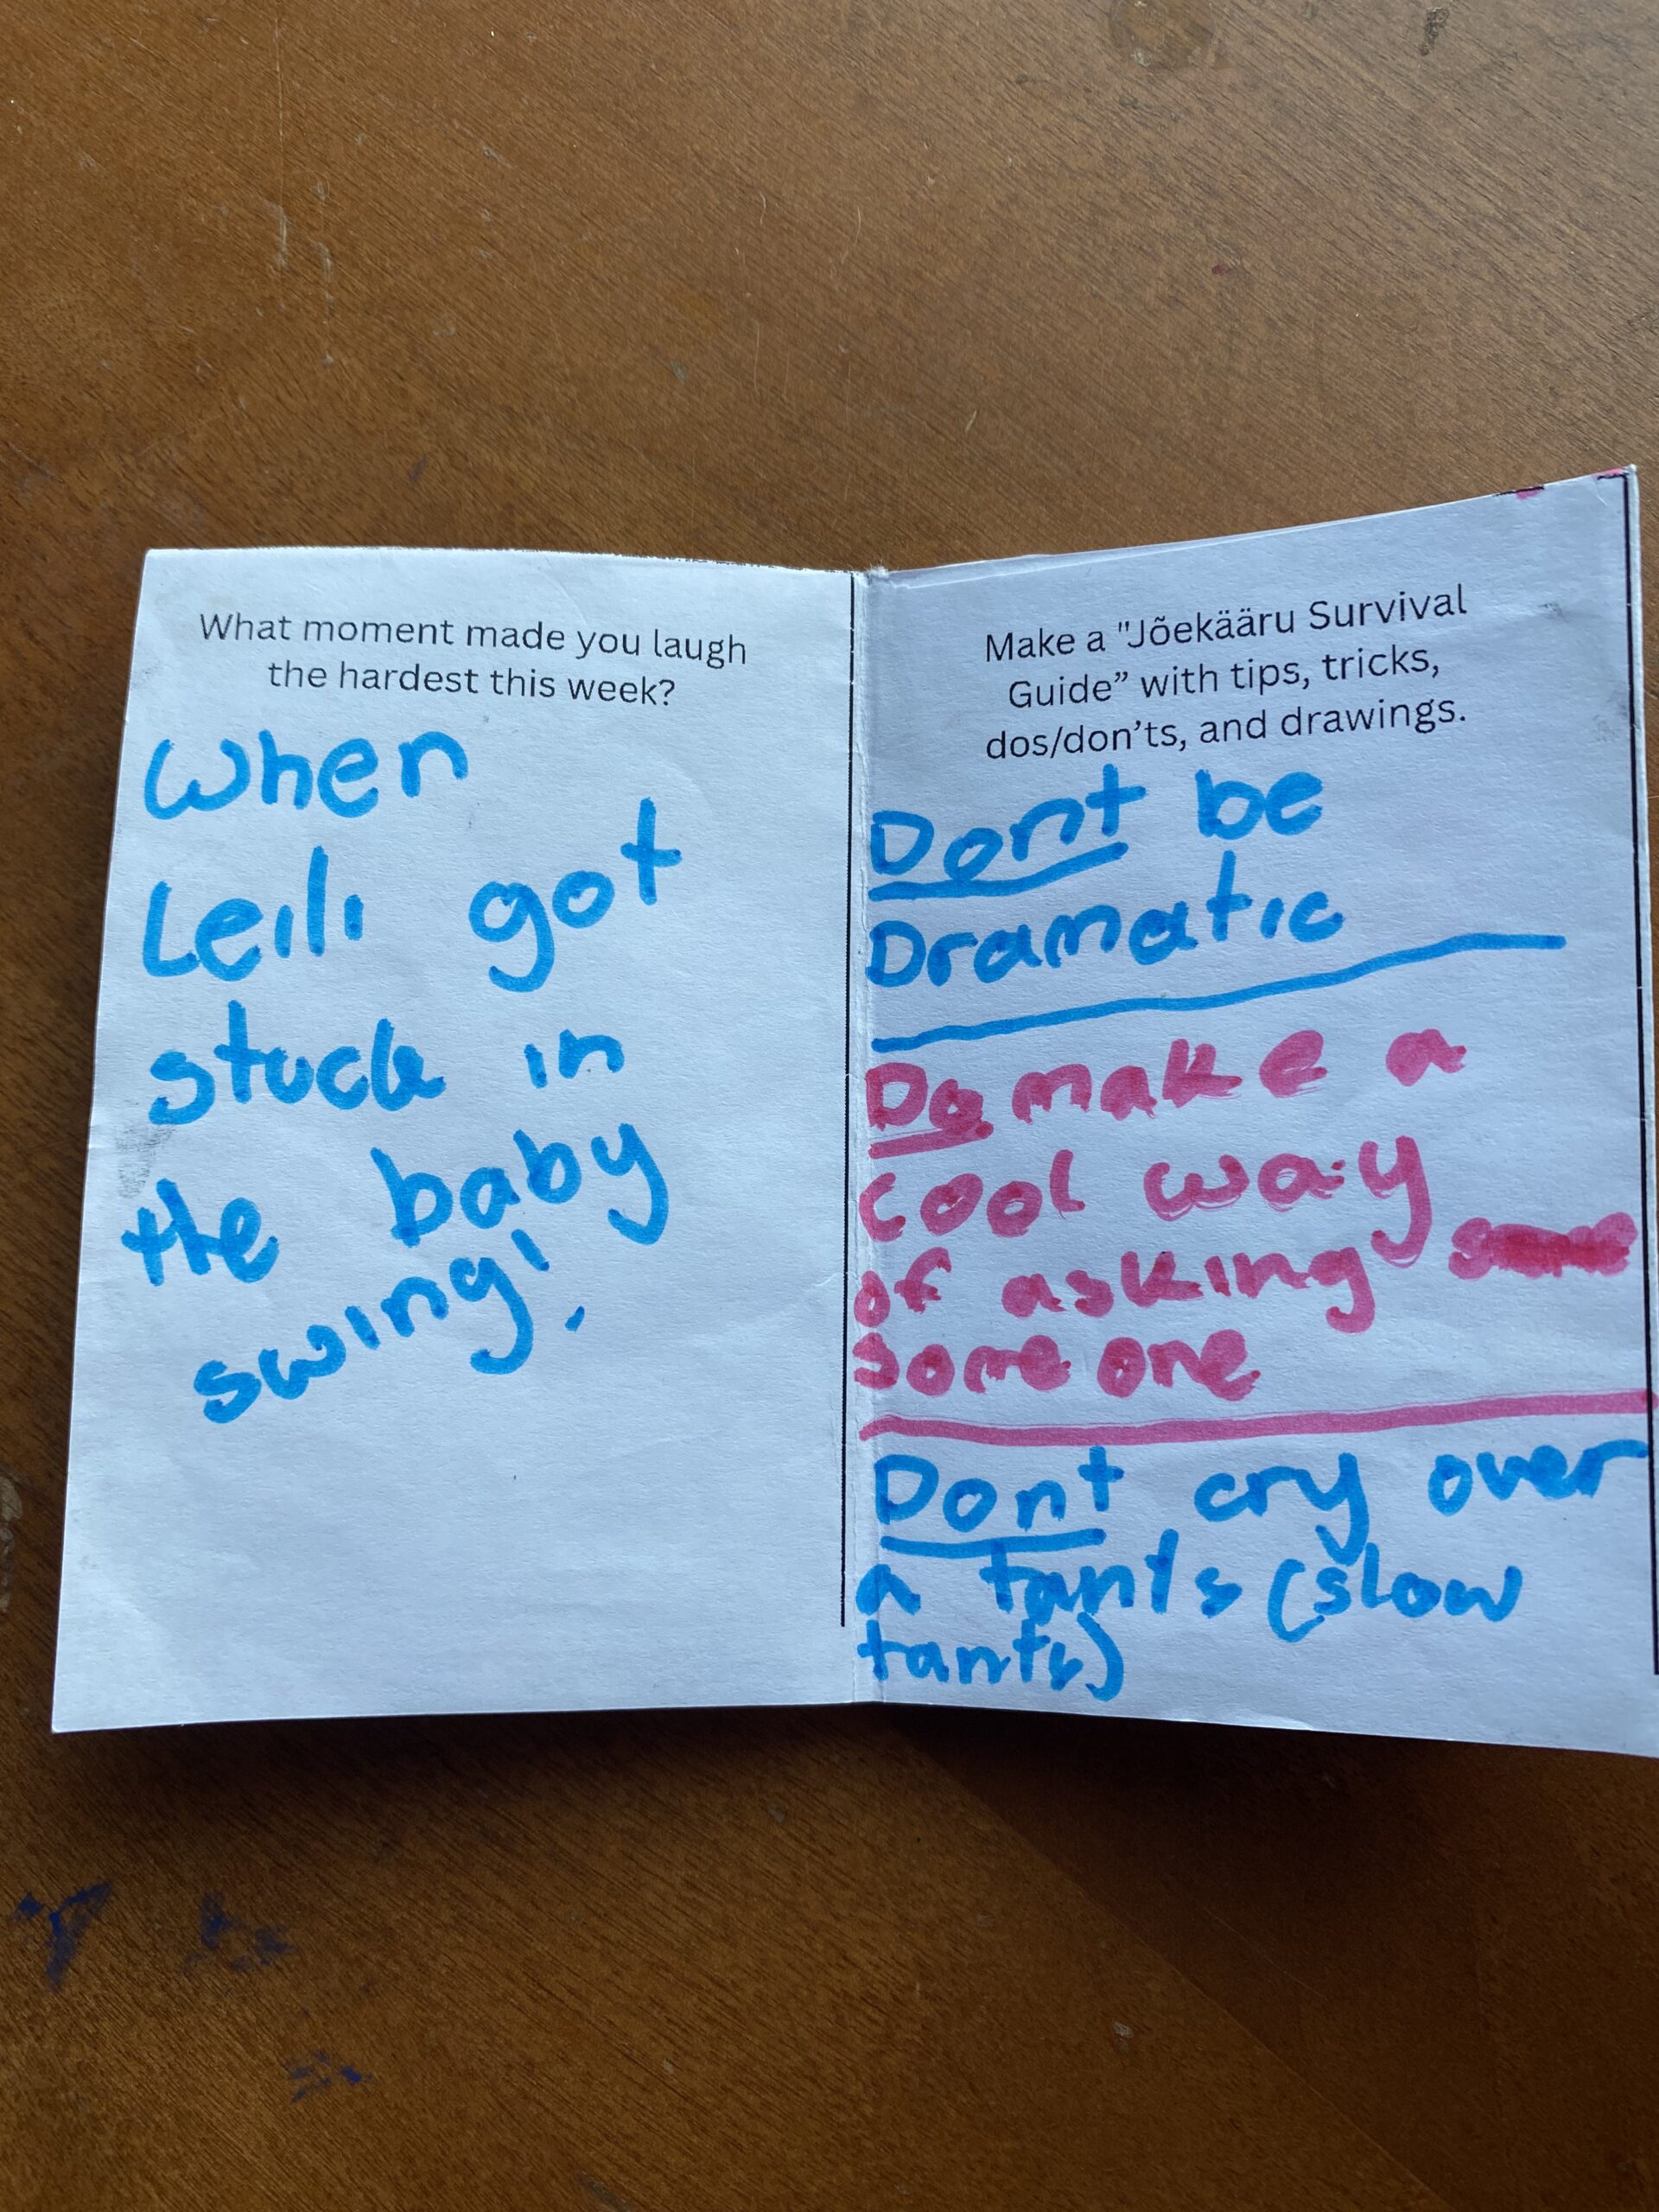 What moment made you laugh
the hardest this week?
When
Leili got
stuck in
the baby
swing!
Make a "Jõekääru Survival
Guide” with tips, tricks,
dos/don’ts, and drawings.
Dont be
Dramatic
Do make a
cool way
of asking
some one
Dont cry over
a tants (slow
tants)